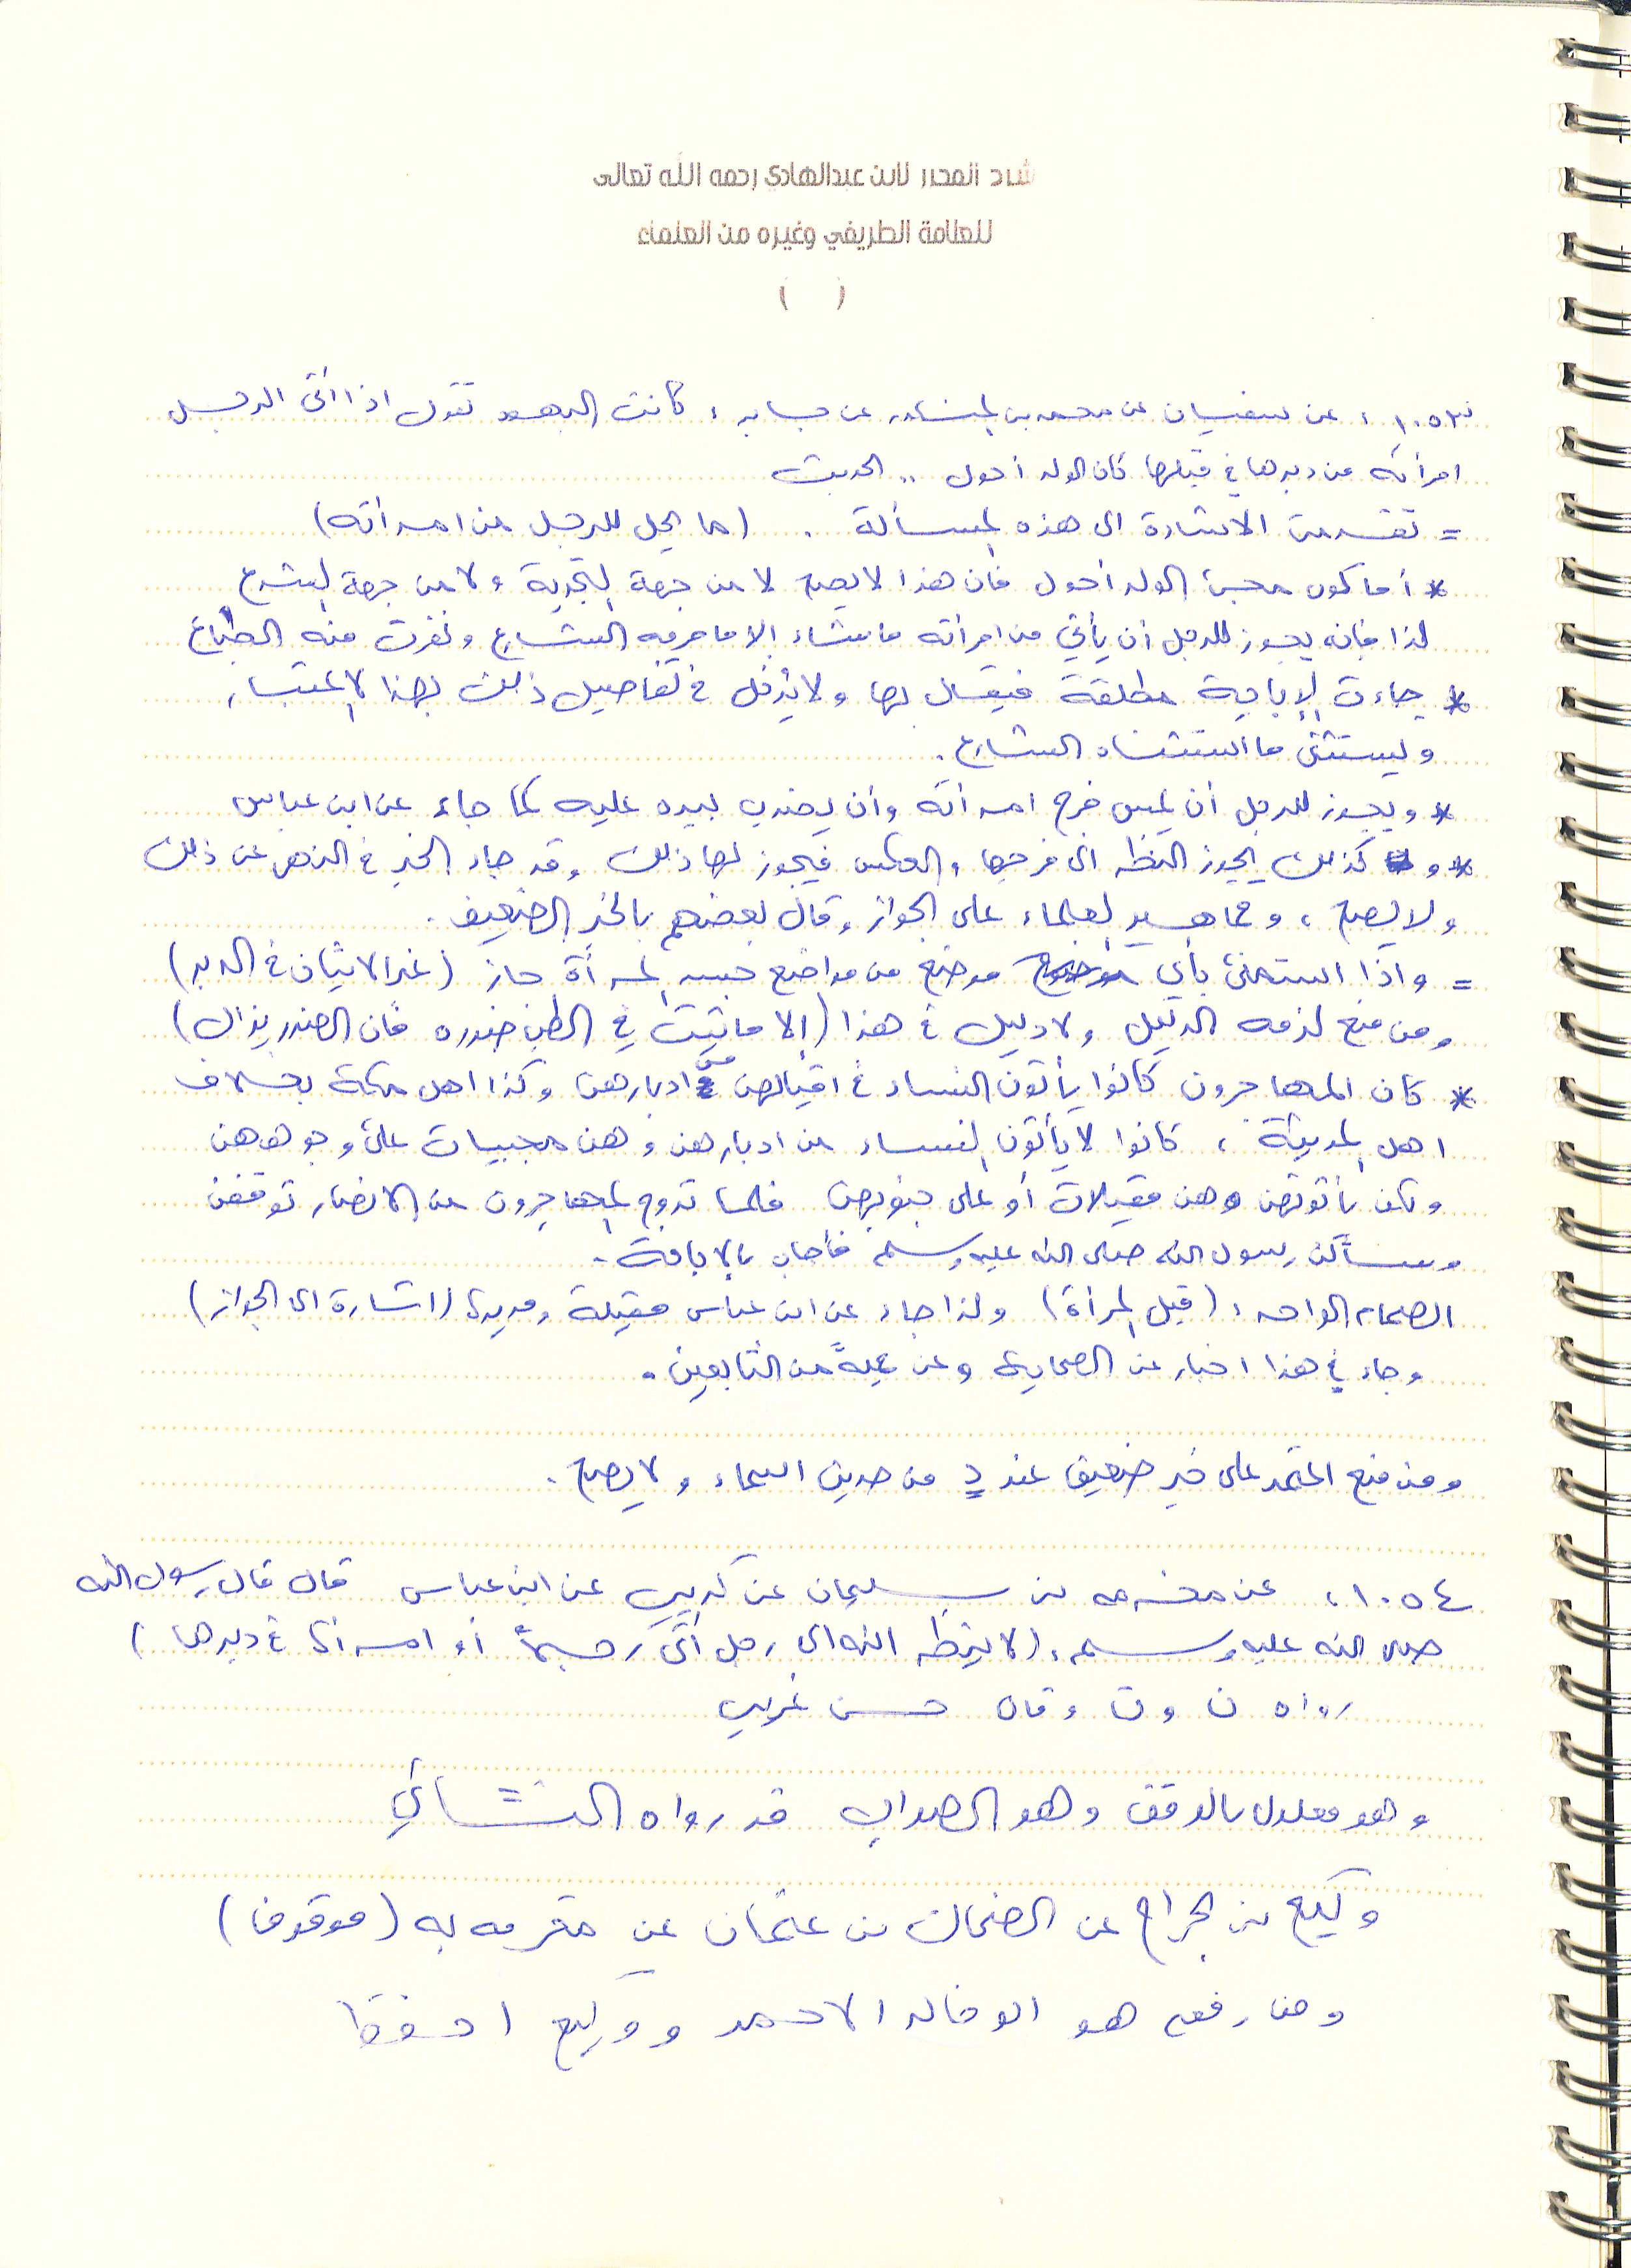 شرح المحرر لابن عبدالهادي رحمه الله تعالى
للعلامة الطريفي وغيره من العلماء
( )
١٠٥٣ : عن سفيان عن محمد بن المنكدر عن جابر : كانت اليهود تقول اذا أتى الرجل
امرأته من دبرها في قبلها كان الولد أحول .. الحديث
= تقدمت الاشارة الى هذه المسألة . (ما يحل للرجل من امرأته)
* أما كون مجيئ الولد أحول فان هذا لا يصح لا من جهة التجربة ولا من جهة الشرع
لذا فانه يجوز للرجل أن يأتي من امرأته ما يشاء إلا ما حرمه الشارع ونفرت منه الطباع
* جاءت الإباحة مطلقة فيقال بها ولا يُدخل في تفاصيل ذلك بهذا الاعتبار
ويستثنى ما استثناه الشارع .
* ويجوز للرجل أن يمس فرج امرأته وأن يضرب بيده عليه كما جاء عن ابن عباس
* و كذلك يجوز النظر الى فرجها والعكس فيجوز لها ذلك وقد جاء الخبر في النهي عن ذلك
ولا يصح ، وجماهير العلماء على الجواز وقال بعضهم بالخبر الضعيف .
= واذا استمنى بأي موضع من مواضع جسد المرأة جاز (غير الاتيان في الدبر)
ومن منع لزمه الدليل ولا دليل في هذا (إلا ما ثبت في الطب ضرره فان الضرر يزال)
* كان المهاجرون كانوا يأتون النساء في اقبالهن من ادبارهن وكذا اهل مكة بخلاف
اهل المدينة ، كانوا لا يأتون النساء من ادبارهن وهن مجبيات على وجوههن
ولكن يأتونهن وهن مقبلات أو على جنوبهن فلما تزوج المهاجرون من الانصار توقفن
وسألن رسول الله صلى الله عليه وسلم فأجاب بالإباحة .
الصمام الواحد : (قبل المرأة) ولذا جاء عن ابن عباس مقبلة ومدبرة (اشارة الى الجواز)
وجاء في هذا اخبار عن الصحابة وعن جملةً من التابعين .
ومن منع اعتمد على خبر ضعيف عند د من حديث اسماء ولا يصح .
١٠٥٤ : عن مخرمه بن سليمان عن كريب عن ابن عباس قال قال رسول الله
صلى الله عليه وسلم : (لا ينظر الله الى رجل أتى رجلاً أو امرأة في دبرها)
رواه ن و ت وقال حسن غريب
وهو معلول بالوقف وهو الصواب قد رواه النسائي
وكيع بن الجراح عن الضحاك بن عثمان عن مخرمه به (موقوف)
ومن رفعه هو ابو خالد الاحمر ووكيع احفظ